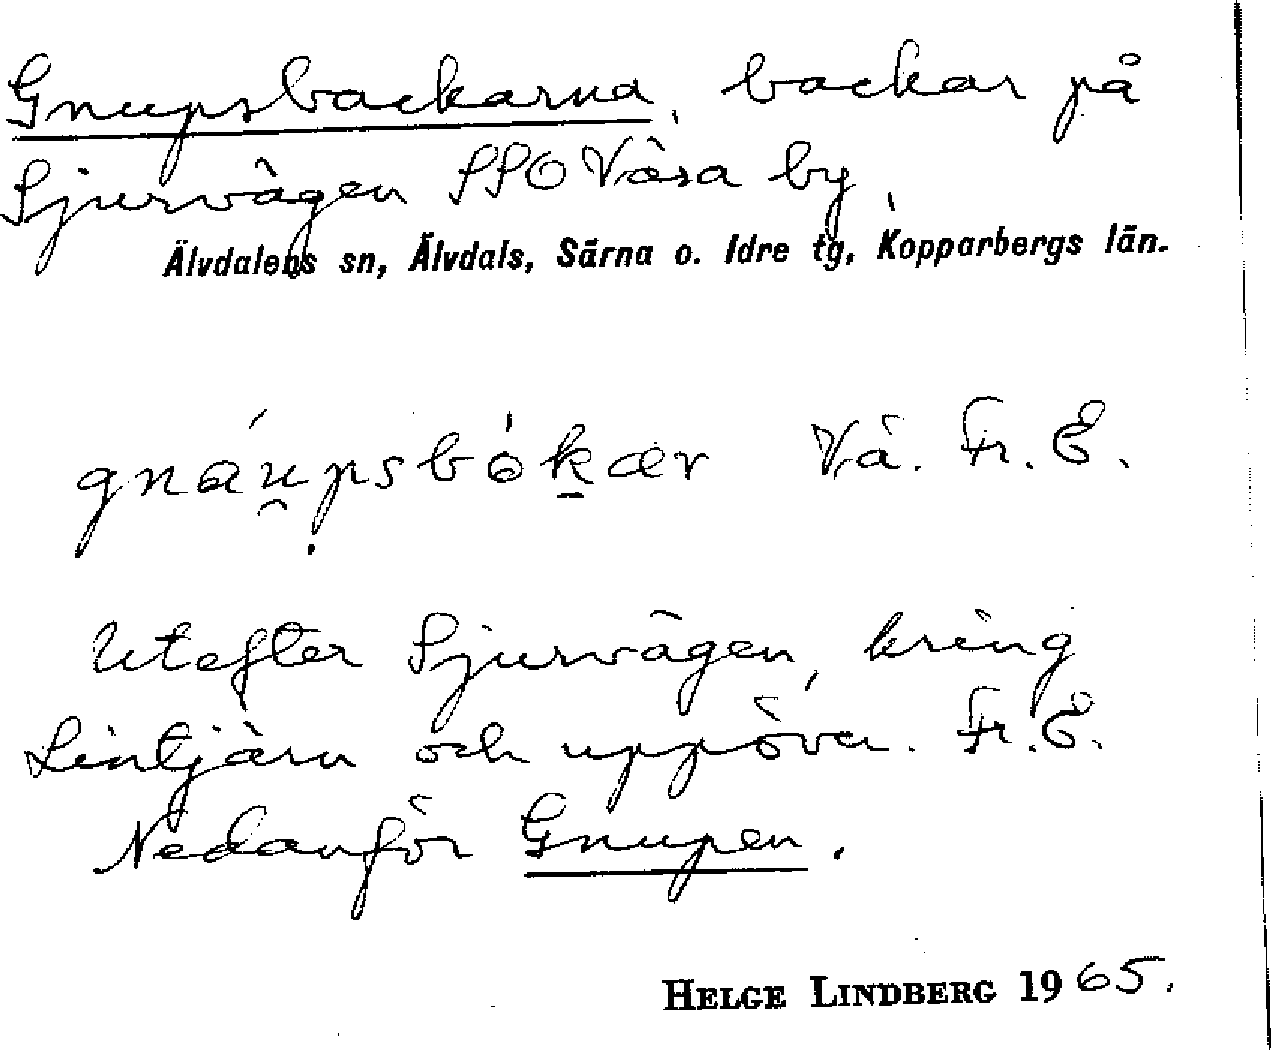 Gnupsbackarna, backar på
Sjurvägen SSO Våsa by,
Älvdalens sn, Älvdals, Särna o. Idre tg, Kopparbergs län.
gnáu̯psbókær Vå. Fr. E.
Utefter Sjurvägen, kring
Lintjärn och uppöver. Fr. E.
Nedanför Gnupen.
HELGE LINDBERG 1965.